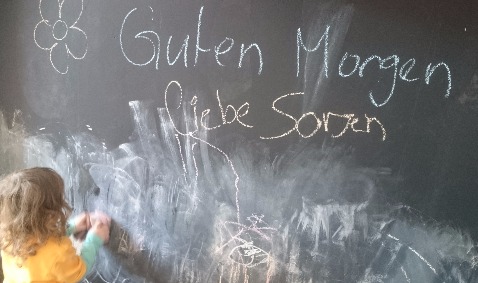 Guten Morgen
liebe Sorgen